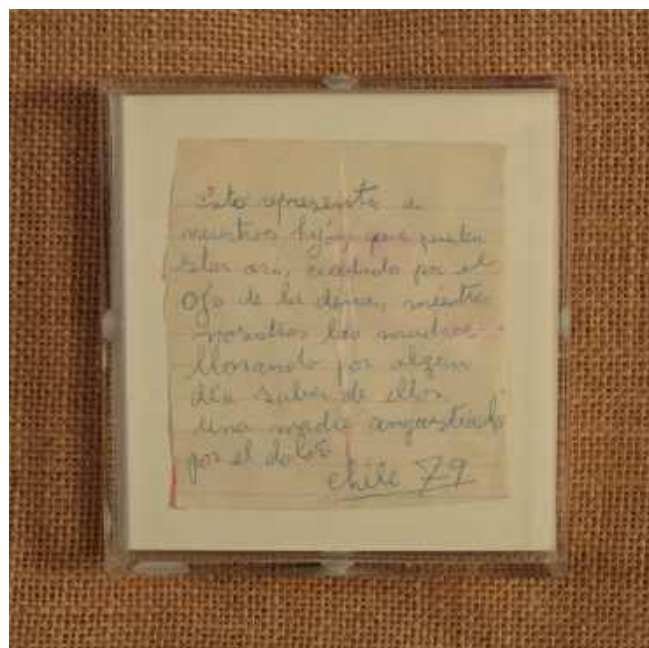 Esto representa a
nuestros hijos, que pueden
estar asi, cuidado por el
Ojo de la dina, mientra
nosotros las madres
llorando por algun
dia saber de ellos
una madre angustiada
por el dolor
chile 79